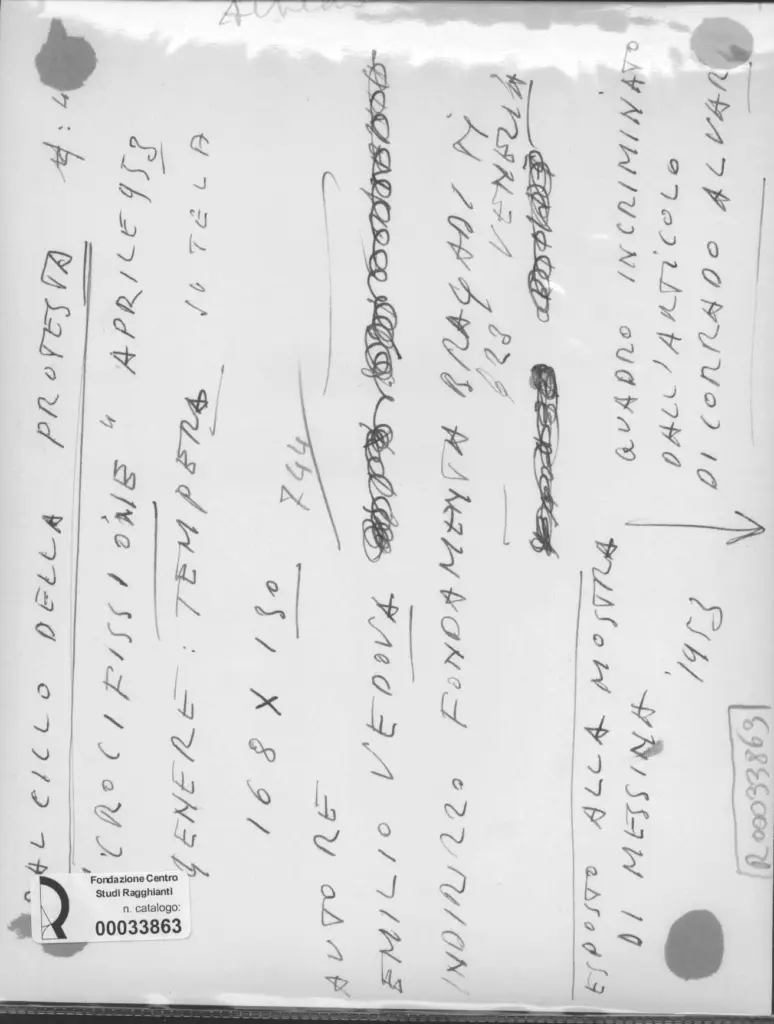 DAL CICLO DELLA PROTESTA N: 4
"CROCIFISSIONE" APRILE 953
GENERE: TEMPERA SU TELA
168 X 130
744
AUTORE
EMILIO VEDOVA
INDIRIZZO FONDAMENTA BRAGADIN
628 VENEZIA
ESPOSTO ALLA MOSTRA
DI MESSINA
1953
QUADRO INCRIMINATO
DALL'ARTICOLO
DI CORRADO ALVARO
R00033863
Fondazione Centro
Studi Ragghianti
n. catalogo:
00033863